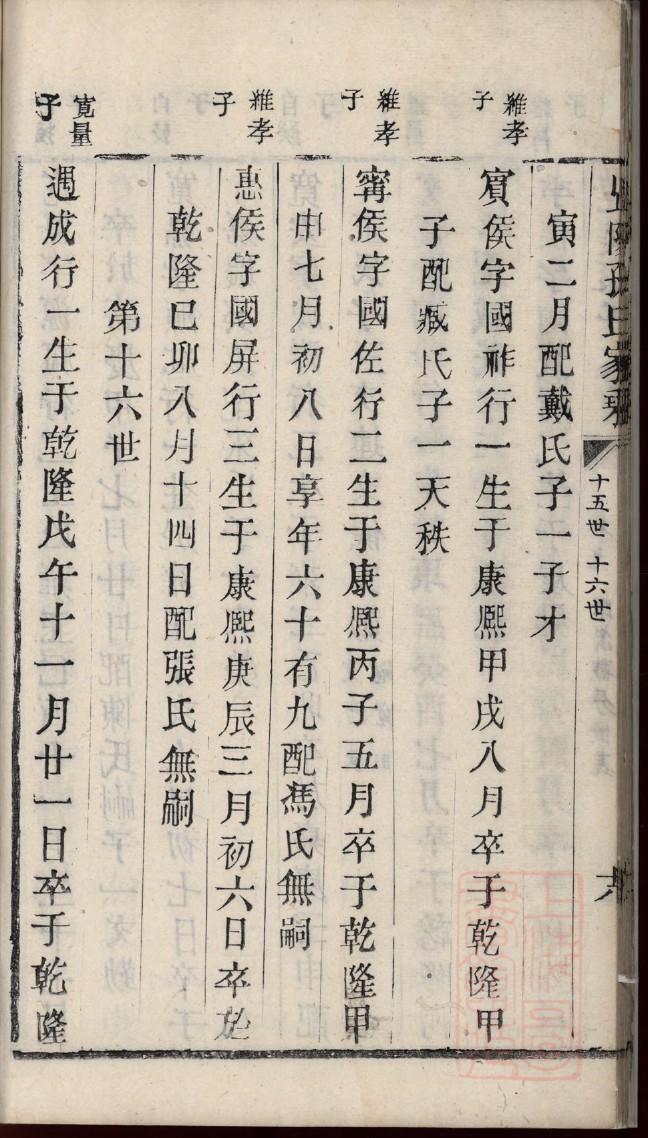 孫氏家乘
十五世 十六世
寅二月配戴氏子一子才
維孝
子
賓侯字國祚行一生于康熙甲戌八月卒于乾隆甲
子配臧氏子一天秩
維孝
子
甯侯字國佐行二生于康熙丙子五月卒于乾隆甲
申七月初八日享年六十有九配馮氏無嗣
維孝
子
惠侯字國屏行三生于康熙庚辰三月初六日卒於
乾隆已卯八月十四日配張氏無嗣
第十六世
寬量
子
遇成行一生于乾隆戊午十一月廿一日卒于乾隆